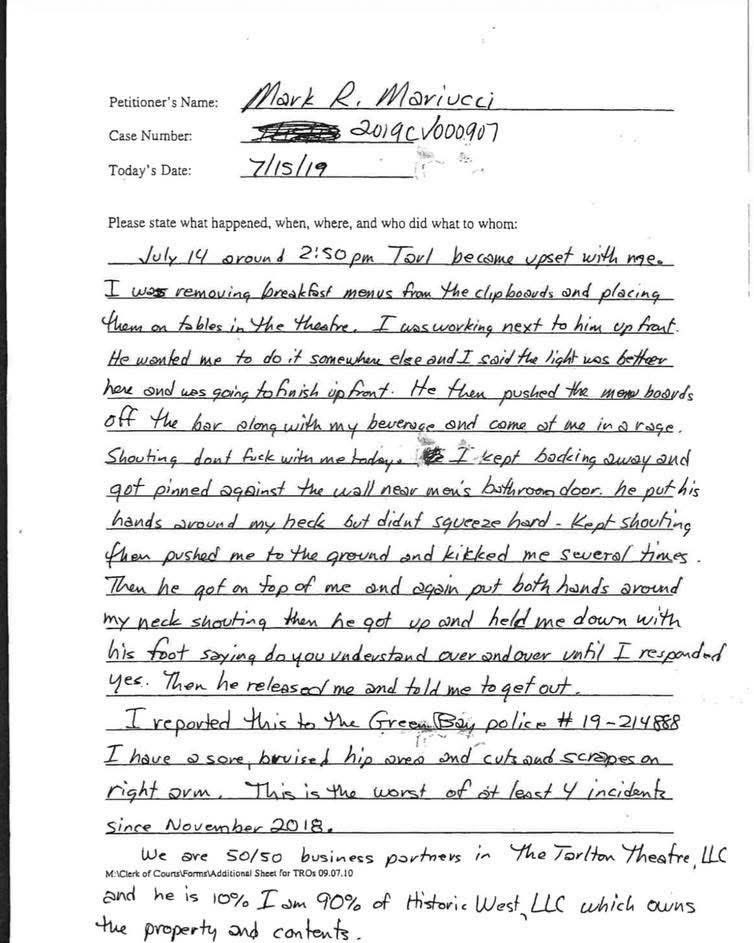 Petitioner's Name: Mark R. Mariucci
Case Number: 2019CV000907
Today's Date: 7/15/19
Please state what happened, when, where, and who did what to whom:
July 14 around 2:50pm Tarl become upset with me.
I was removing breakfast menus from the clipboards and placing
them on tables in the theatre. I was working next to him up front.
He wanted me to do it somewhere else and I said the light was better
here and was going to finish up front. He then pushed the menu boards
off the bar along with my beverage and came at me in a rage.
Shouting dont fuck with me today. I kept backing away and
got pinned against the wall near men's bathroom door. he put his
hands around my neck but didnt squeeze hard - Kept shouting
then pushed me to the ground and kikked me several times.
Then he got on top of me and again put both hands around
my neck shouting then he got up and held me down with
his foot saying do you understand over and over until I responded
yes. Then he released me and told me to get out.
I reported this to the Green Bay police # 19-214888
I have a sore, bruised hip area and cuts and scrapes on
right arm. This is the worst of at least 4 incidents
since November 2018.
We are 50/50 business partners in The Tarlton Theatre, LLC
M:\Clerk of Courts\Forms\Additional Sheet for TROs 09.07.10
and he is 10% I am 90% of Historic West, LLC which owns
the property and contents.